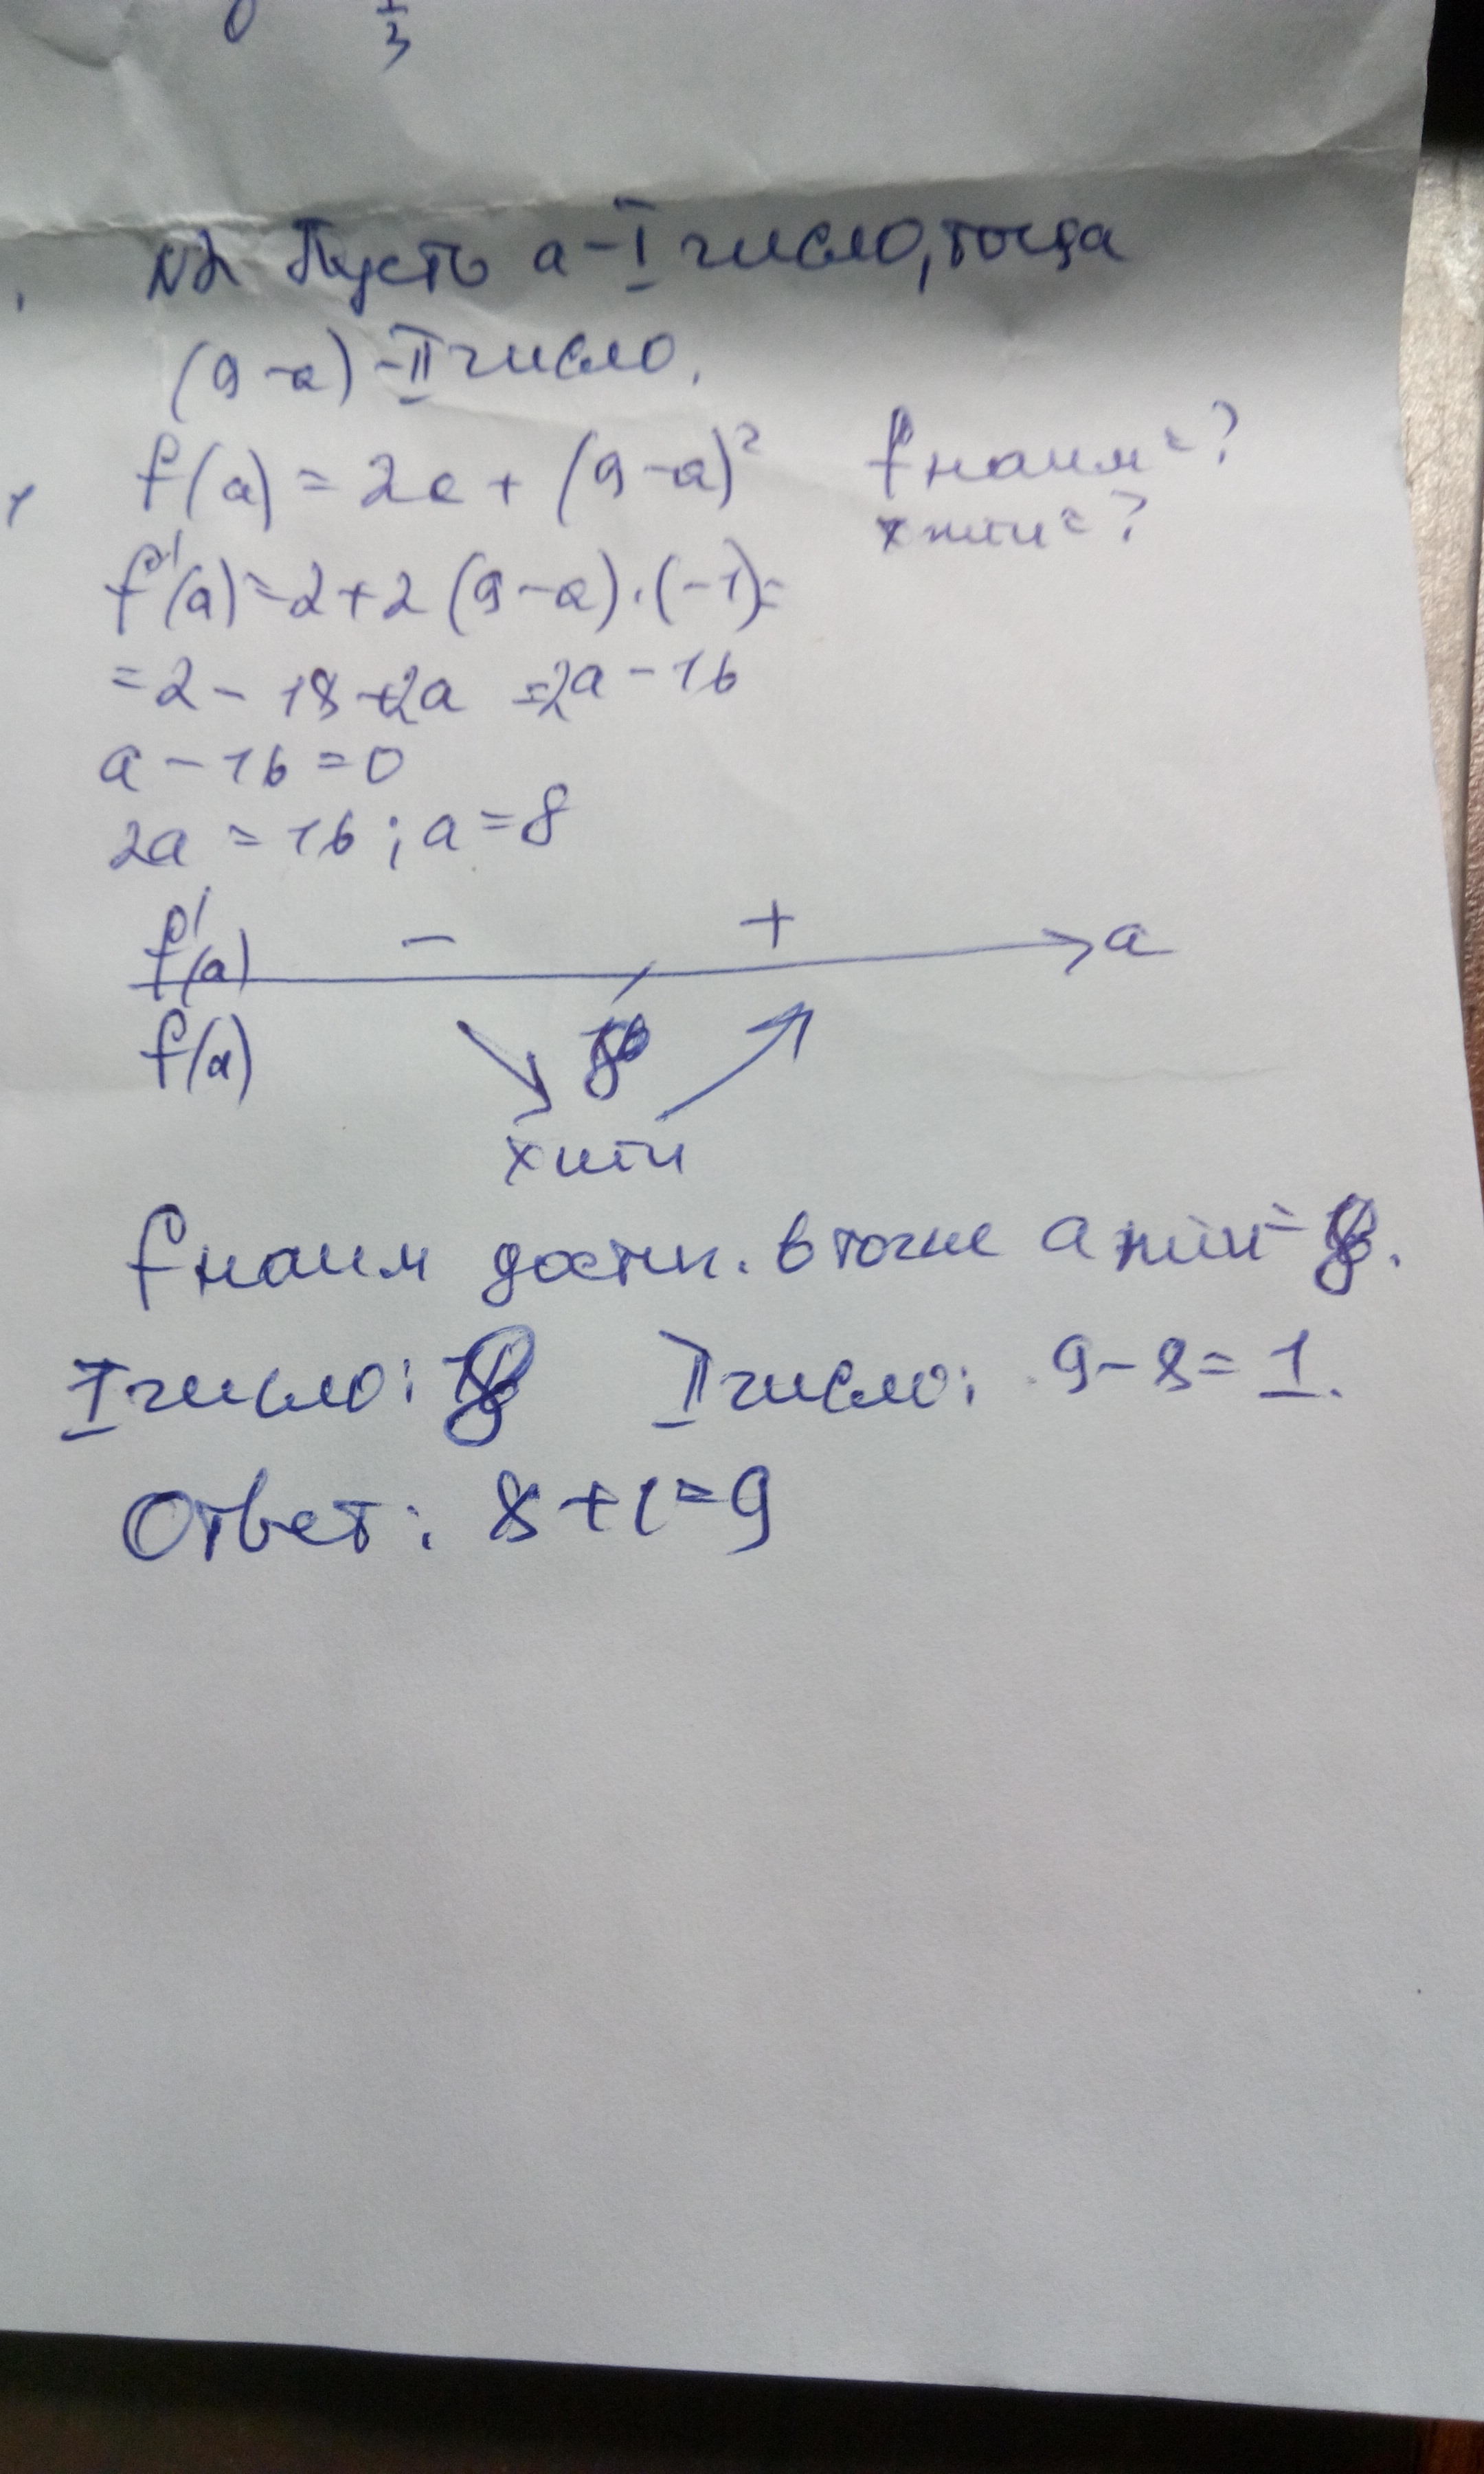 0 1/3
N2 Пусть a - I число, тогда
(9-a) - II число.
f(a) = 2a + (9-a)² fнаим = ?
xmin = ?
f'(a) = 2+2(9-a)·(-1)=
=2-18+2a =2a-16
a-16=0
2a=16; a=8
f'(a) - + a
f(a) 8
xmin
fнаим достиг. в точке amin=8.
I число: 8 II число: 9-8=1.
Ответ: 8+1=9